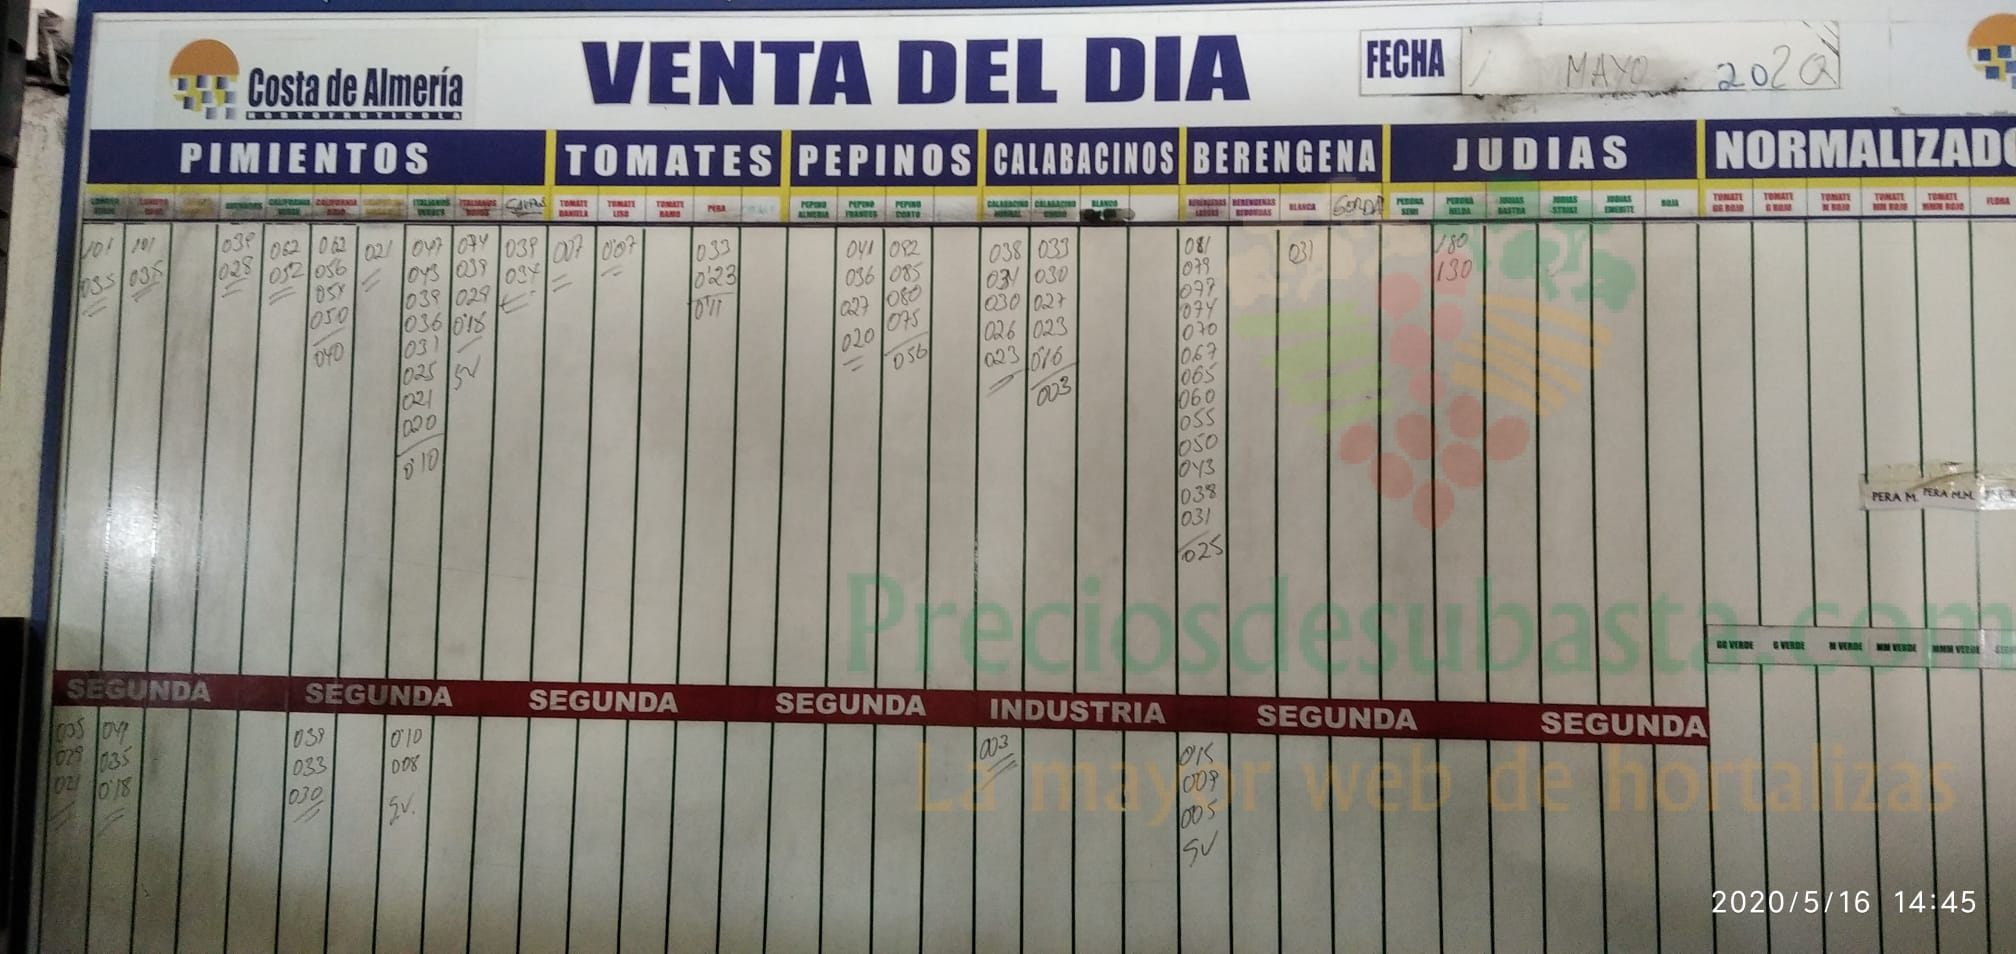 Costa de Almería
HORTOFRUTICOLA
VENTA DEL DIA
FECHA
MAYO 2020
PIMIENTOS TOMATES PEPINOS CALABACINOS BERENGENA JUDIAS NORMALIZADO
CALIFORNIA ROJO ITALIANOS VERDES ITALIANOS ROJOS TOMATE DANIELA TOMATE LISO TOMATE RAMO PERA PEPINO ALMERIA PEPINO FRANCES PEPINO CORTO CALABACINO NORMAL CALABACINO GORDO BLANCO BERENGENAS LARGAS BERENGENAS REDONDAS BLANCA GORDA PERONA SEMI PERONA HELDA JUDIAS RASTRA JUDIAS STRIKE JUDIAS EMERITE ROJA TOMATE GG ROJO TOMATE G ROJO TOMATE M ROJO TOMATE MM ROJO TOMATE MMM ROJO FLORA
101 101 039 062 062 021 047 074 039 007 0'07 033 041 092 038 033 081 031 180
035 035 028 052 056 043 039 034 0'23 036 085 034 030 079 130
054 039 029 0'11 027 080 030 027 077
050 036 0'18 020 075 026 023 074
040 031 SV 056 023 0'16 070
025 003 067
021 065
020 060
0'10 055
050
043
038
031
025
PERA M. PERA M.M.
GG VERDE G VERDE M VERDE MM VERDE MMM VERDE
SEGUNDA SEGUNDA SEGUNDA SEGUNDA INDUSTRIA SEGUNDA SEGUNDA
035 041 039 0'10 003 0'15
029 035 033 008 009
021 0'18 030 SV. 005
SV
Preciosdesubasta.com
La mayor web de hortalizas
2020/5/16 14:45